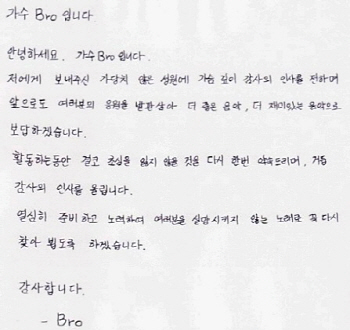 가수 Bro 입니다
안녕하세요. 가수 Bro 입니다.
저에게 보내주신 가당치 않은 성원에 가슴 깊이 감사의 인사를 전하며
앞으로도 여러분의 응원을 발판삼아 더 좋은 음악, 더 재미있는 음악으로
보답하겠습니다.
활동하는동안 결코 초심을 잃지 않을 것을 다시 한번 약속드리며, 거듭
감사의 인사를 올립니다.
열심히 준비하고 노력하여 여러분을 실망시키지 않는 노래로 꼭 다시
찾아 뵙도록 하겠습니다.
감사합니다.
- Bro